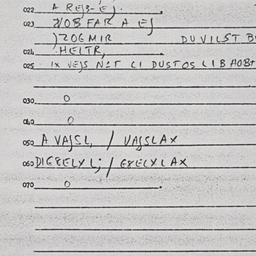 022 A REB-EJ.
023 NOBFAR A EJ
)ZOGMIR DUVILST B
024 HELTR,
025 IX VEJS NOT CI DUSTOS LIB AOBT
030 0
040 0
050 A VAJSL, / VAJSLAX
060 DIGBELXL; / EXELXLAX
070 0